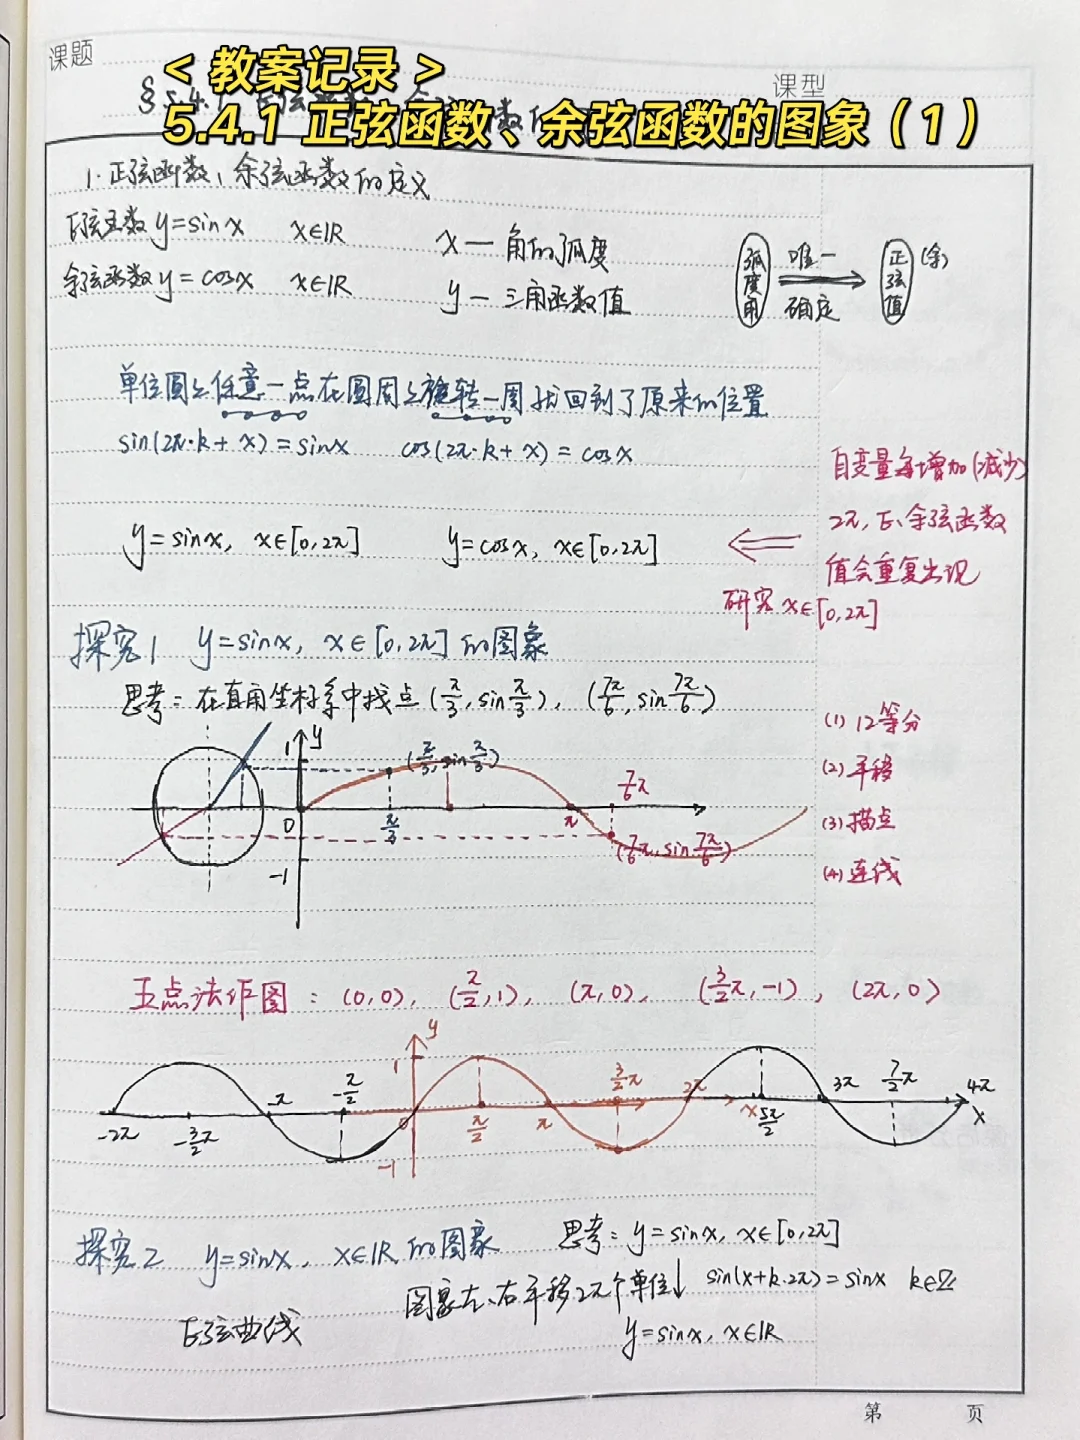 课题
课型
< 教案记录 >
§5.4.1
5.4.1 正弦函数、余弦函数的图象（1）
1. 正弦函数、余弦函数的定义
正弦函数 y=sinx x∈R
余弦函数 y=cosx x∈R
x — 角的弧度
y — 三角函数值
弧度角 唯一确定 正弦值 (余)
单位圆上任意一点在圆周上旋转一周就回到了原来的位置
sin(2π·k+x)=sinx cos(2π·k+x)=cosx
自变量每增加(减少)
2π, 正、余弦函数
值会重复出现
y=sinx, x∈[0,2π] y=cosx, x∈[0,2π]
研究 x∈[0,2π]
探究1 y=sinx, x∈[0,2π]的图象
思考：在直角坐标系中找点(π/3, sinπ/3), (7π/6, sin7π/6)
(1) 12等分
(2) 平移
(3) 描点
(4) 连线
1 y
(π/3, sinπ/3)
7/6π
0 π/3 π
(7/6π, sin7π/6)
-1
五点法作图：(0,0), (π/2,1), (π,0), (3/2π,-1), (2π,0)
y
1
-2π -3/2π -π -π/2 0 π/2 π 3/2π 2π x 5π/2 3π 7/2π 4π x
-1
探究2 y=sinx, x∈R 的图象
思考：y=sinx, x∈[0,2π]
图象左、右平移2π个单位↓ sin(x+k·2π)=sinx k∈Z
正弦曲线
y=sinx, x∈R
第 页